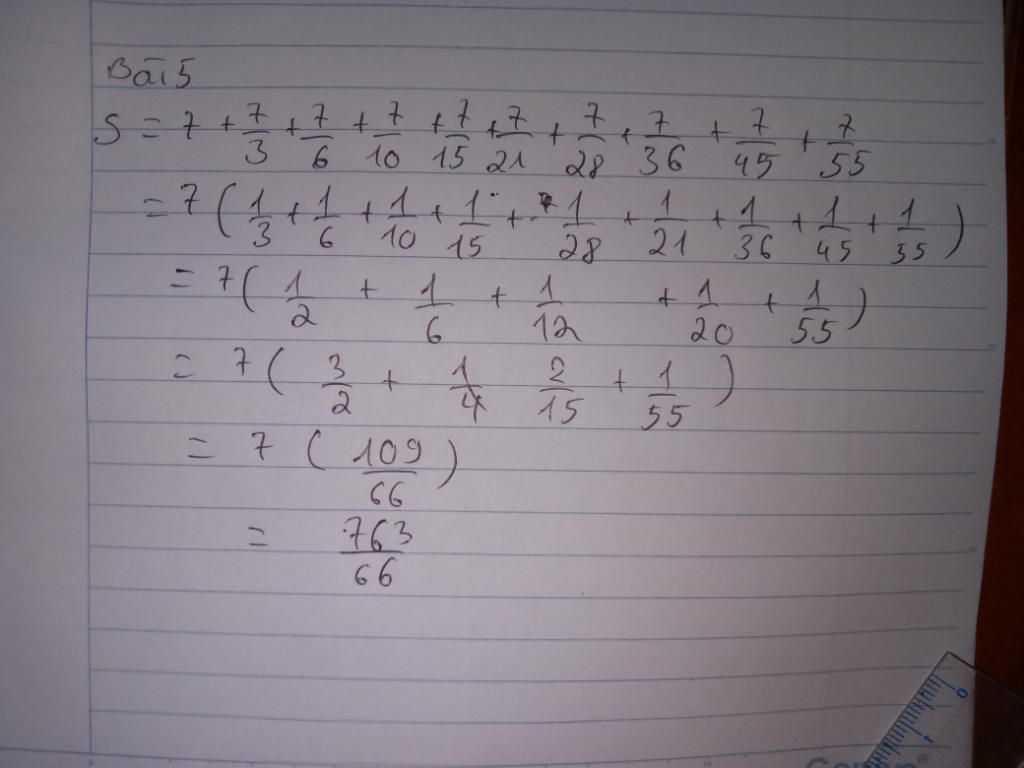 Bài 5
S = 7 + 7/3 + 7/6 + 7/10 + 7/15 + 7/21 + 7/28 + 7/36 + 7/45 + 7/55
= 7 ( 1/3 + 1/6 + 1/10 + 1/15 + 1/28 + 1/21 + 1/36 + 1/45 + 1/55 )
= 7 ( 1/2 + 1/6 + 1/12 + 1/20 + 1/55 )
= 7 ( 3/2 + 1/4 2/15 + 1/55 )
= 7 ( 109/66 )
= 763/66
0